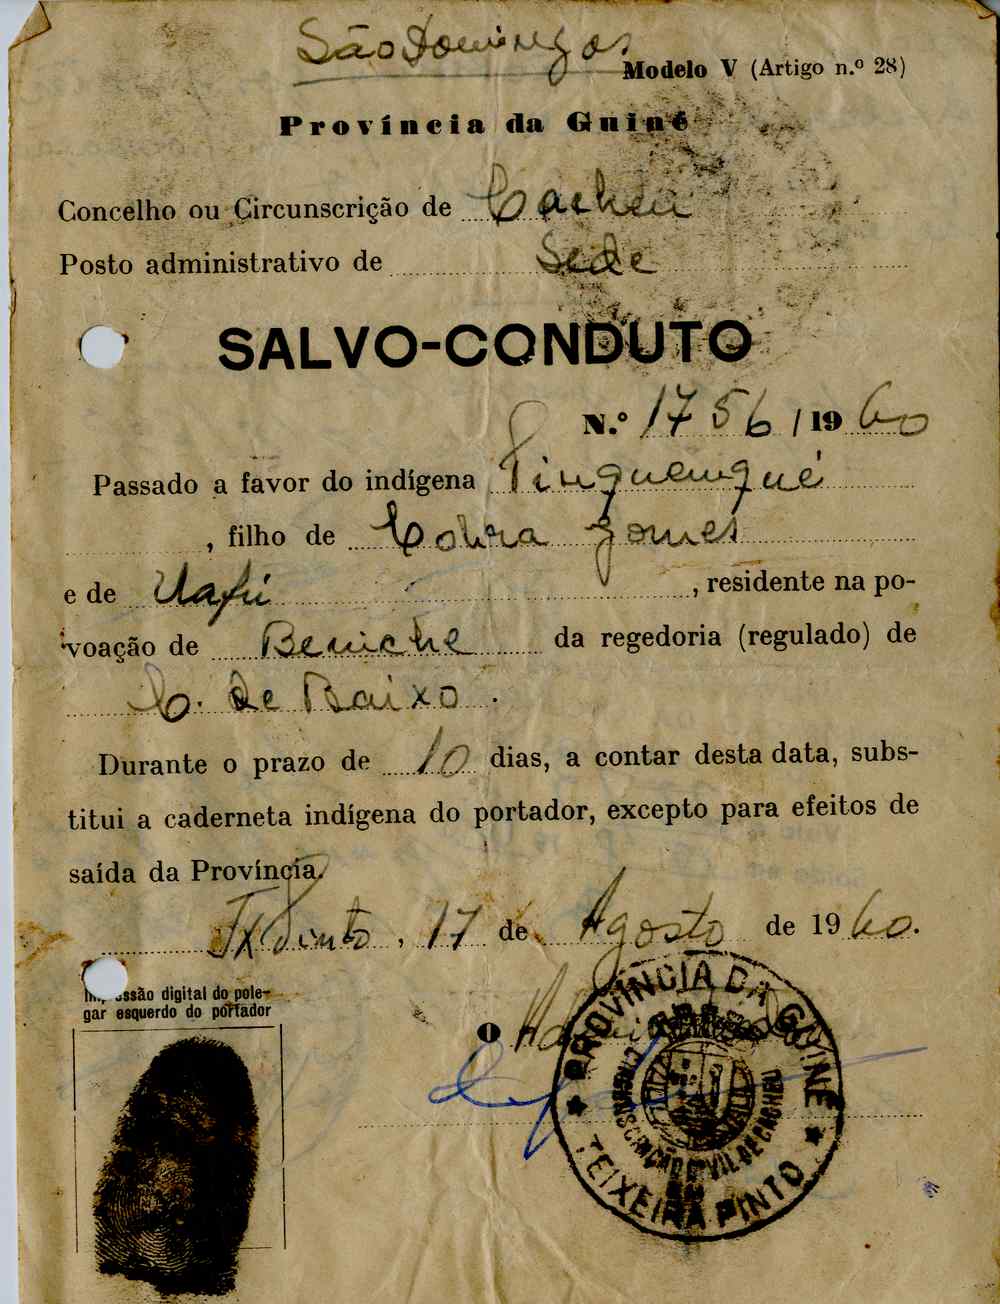 São Domingos
Modelo V (Artigo n.º 28)
Província da Guiné
Concelho ou Circunscrição de Cacheu
Posto administrativo de Sede
SALVO-CONDUTO
N.º 1756/1960
Passado a favor do indígena Pinquenqué
, filho de Cobra Gomes
e de Uafú, residente na po-
voação de Beniche da regedoria (regulado) de
C. de Baixo.
Durante o prazo de 10 dias, a contar desta data, subs-
titui a caderneta indígena do portador, excepto para efeitos de
saída da Província.
Tx Pinto, 17 de Agosto de 1960.
Impressão digital do pole-
gar esquerdo do portador
O
PROVÍNCIA DA GUINÉ
CIRCUNSCRIÇÃO CIVIL DE CACHEU
EM
TEIXEIRA PINTO